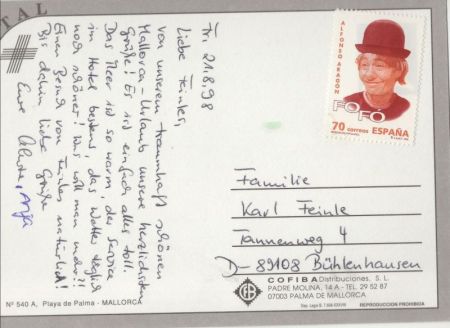 TAL
Fr. 21.8.98
Liebe Feinles,
von unserem traumhaft schönen
Mallorca-Urlaub unsere herzlichsten
Grüße! Es ist einfach alles toll.
Das Meer ist so warm, der Service
im Hotel bestens, das Wetter täglich
noch schöner! Was will man mehr?!
Einen Besuch von Feinles natürlich!
Bis dahin liebe Grüße
Eure
Anja
ALFONSO ARAGÓN
FOFO
70 correos ESPAÑA
Familie
Karl Feinle
Tannenweg 4
D-89108 Bühlenhausen
COFIBA Distribuciones, S. L.
PADRE MOLINA, 14 A - TEL. 29 52 87
07003 PALMA DE MALLORCA
Nº 540 A, Playa de Palma - MALLORCA
REPRODUCCION PROHIBIDA